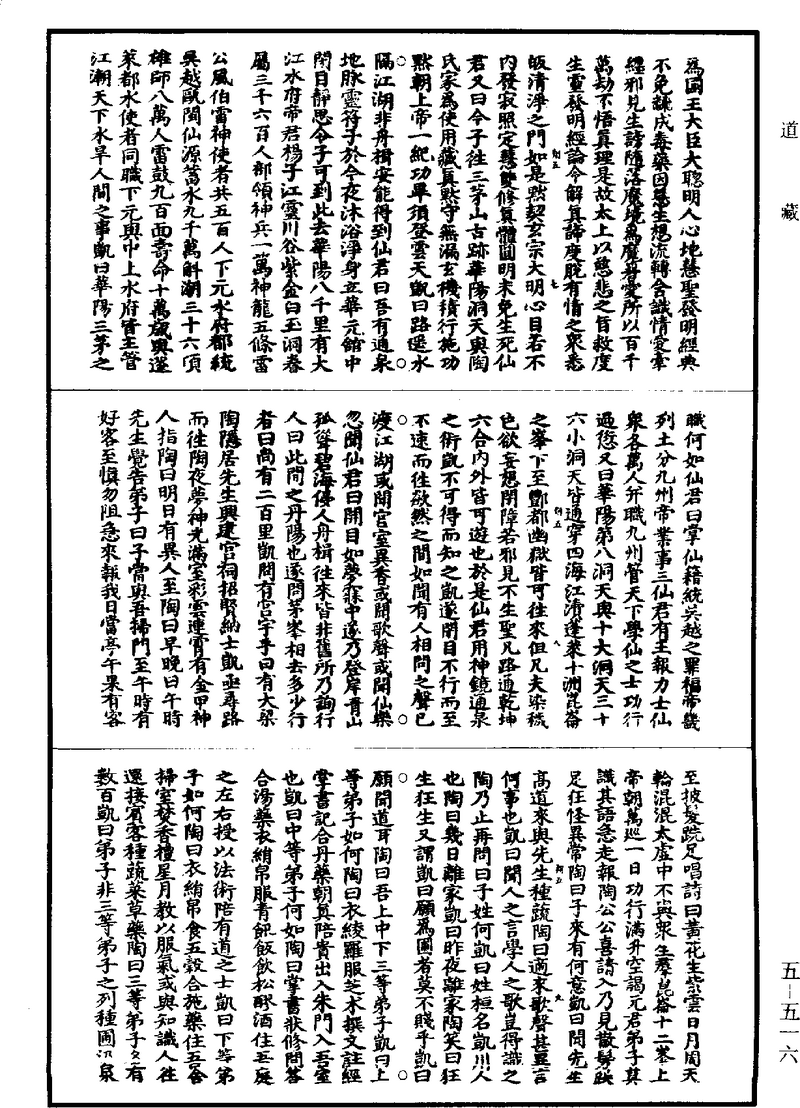 道藏
為國王大臣大聰明人心地慧聖發明經典
不免讖成毒藥因惡生想流轉含識情愛牽
纏邪見生謗隨落魔境為魔眷愛所以百千
萬劫不悟真理是故太上以慈悲之旨救度
生靈發明經論令解真諦度脫有情之眾悉
皈清淨之門如是然契玄宗大明心目若不
內發寂照定慧雙修真體圓明未免生死仙
君又曰令子往三茅山古跡華陽洞天與陶
氏家為使用藏真默守無漏玄機積行施功
默朝上帝一紀功畢須登雲天凱曰路遙水
隔江湖非舟楫安能得到仙君曰吾有通泉
地脉靈符子於今夜沐浴淨身立華元館中
閉目靜思令子可到此去華陽八千里有大
江水府帝君楊子江靈川谷紫金白玉洞春
屬三千六百人部領神兵一萬神龍五條雷
公風伯雷神使者共五百人下元水府都統
吳越甌閩仙源蓄水九千萬斛湖三十六頃
雄師八萬人雷鼓九百面壽命十萬歲與蓬
萊都水使者同職下元與中上水府皆主管
江潮天下水旱人間之事凱曰華陽三茅之
職何如仙君曰掌仙籍統吳越之罪福帝畿
列土分九州帝業事三仙君有王報力士仙
眾各萬人并職九州管天下學仙之士功行
過愆又曰華陽第八洞天與十大洞天三十
六小洞天皆通穿四海江清蓬萊十洲崑崙
之峯下至酆都幽獄皆可往來但凡夫染穢
色欲妄想閉障若邪見不生聖凡路通乾坤
六合內外皆可遊也於是仙君用神鏡通泉
之術凱不可得而知之凱遂閉目不行而至
不速而往欻然之間如聞有人相問之聲已
渡江湖或聞宮室異香或聞歌聲或聞仙樂
忽聞仙君曰開目如夢寐中遂乃登岸青山
孤聳碧海侵人舟楫往來皆非舊所乃詢行
人曰此間之丹陽也遂問茅峯相去多少行
者曰尚有二百里凱問有宮宇乎曰有大梁
陶隱居先生興建宮祠招賢納士凱亟尋路
而往陶夜夢神光滿室彩雲連霄有金甲神
人指陶曰明日有異人至陶曰早晚曰午時
先生覺告弟子曰子當與吾掃門至午時有
好客至慎勿阻急來報我日當亭午果有客
至披髮跣足唱詩曰黃花生紫雲日月周天
輪混混太虛中不與眾生羣崑崙十二峯上
帝朝萬巡一日功行滿升空謁元君弟子莫
識其語急走報陶公公喜請入乃見散髮跣
足狂怪異常陶曰子來有何意凱曰聞先生
高道來與先生種蔬陶曰適來歌聲甚異言
何事也凱曰聞人之言學人之歌豈得識之
陶乃止再問曰子姓何凱曰姓桓名凱川人
也陶曰幾日離家凱曰昨夜離家陶笑曰狂
生狂生又謂凱曰願為圃者莫不賤乎凱曰
願聞道耳陶曰吾上中下三等弟子凱曰上
等弟子如何陶曰衣綾羅服芝术撰文註經
掌書記合丹藥朝真陪貴出入朱門入吾室
也凱曰中等弟子何如陶曰掌書狀修問答
合湯藥衣絹帛服青飣飯飲松醪酒住吾庭
之左右授以法術陪有道之士凱曰下等弟
子如何陶曰衣絹帛食五穀合施藥住吾舍
掃室焚香禮星月教以服氣或與知識人往
還接賓客種蔬菜草藥陶曰三等弟子各有
數百凱曰弟子非三等弟子之列種圃汲泉
五-五一六